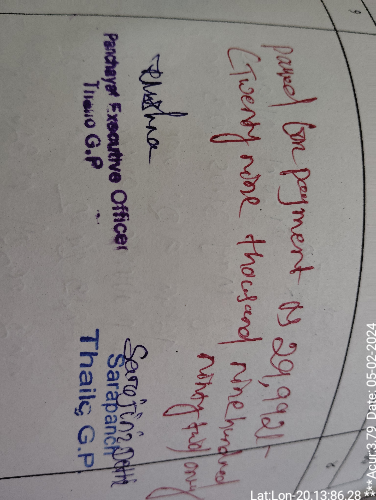 passed for payment Rs 29,992/-
(Twenty nine thousand nine hundred
ninety two only
Panchayat Executive Officer
Thailo G.P
Sarapanch
Thailo G.P
Lat:Lon-20.13:86.28 ***Acur:3.79 Date: 05-02-2024